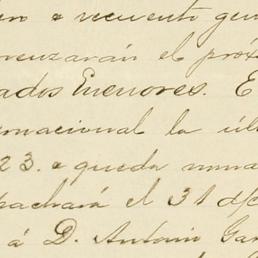 o recuento gen
enzarán el próx
ados Enemores. E
rnacional la últ
23. a queda
pachará el 31 d/c
á D. Antonio Gar